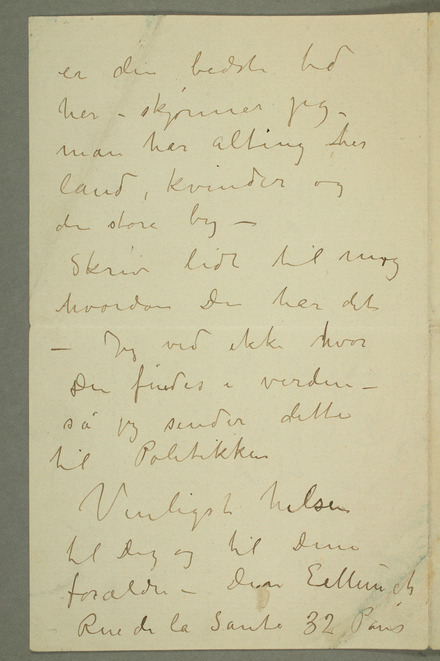 er den bedste tid
her – skjønner jeg –
man har alting her
land, kvinder og
den store by –
Skriv lidt til mig
hvordan Du har det
– Jeg ved ikke hvor
Du findes i verden –
så jeg sender dette
til Politikken
Venligst hilsen
til Dig og til Dine
forældre – Din EdMunch
Rue de la Santé 32 Paris